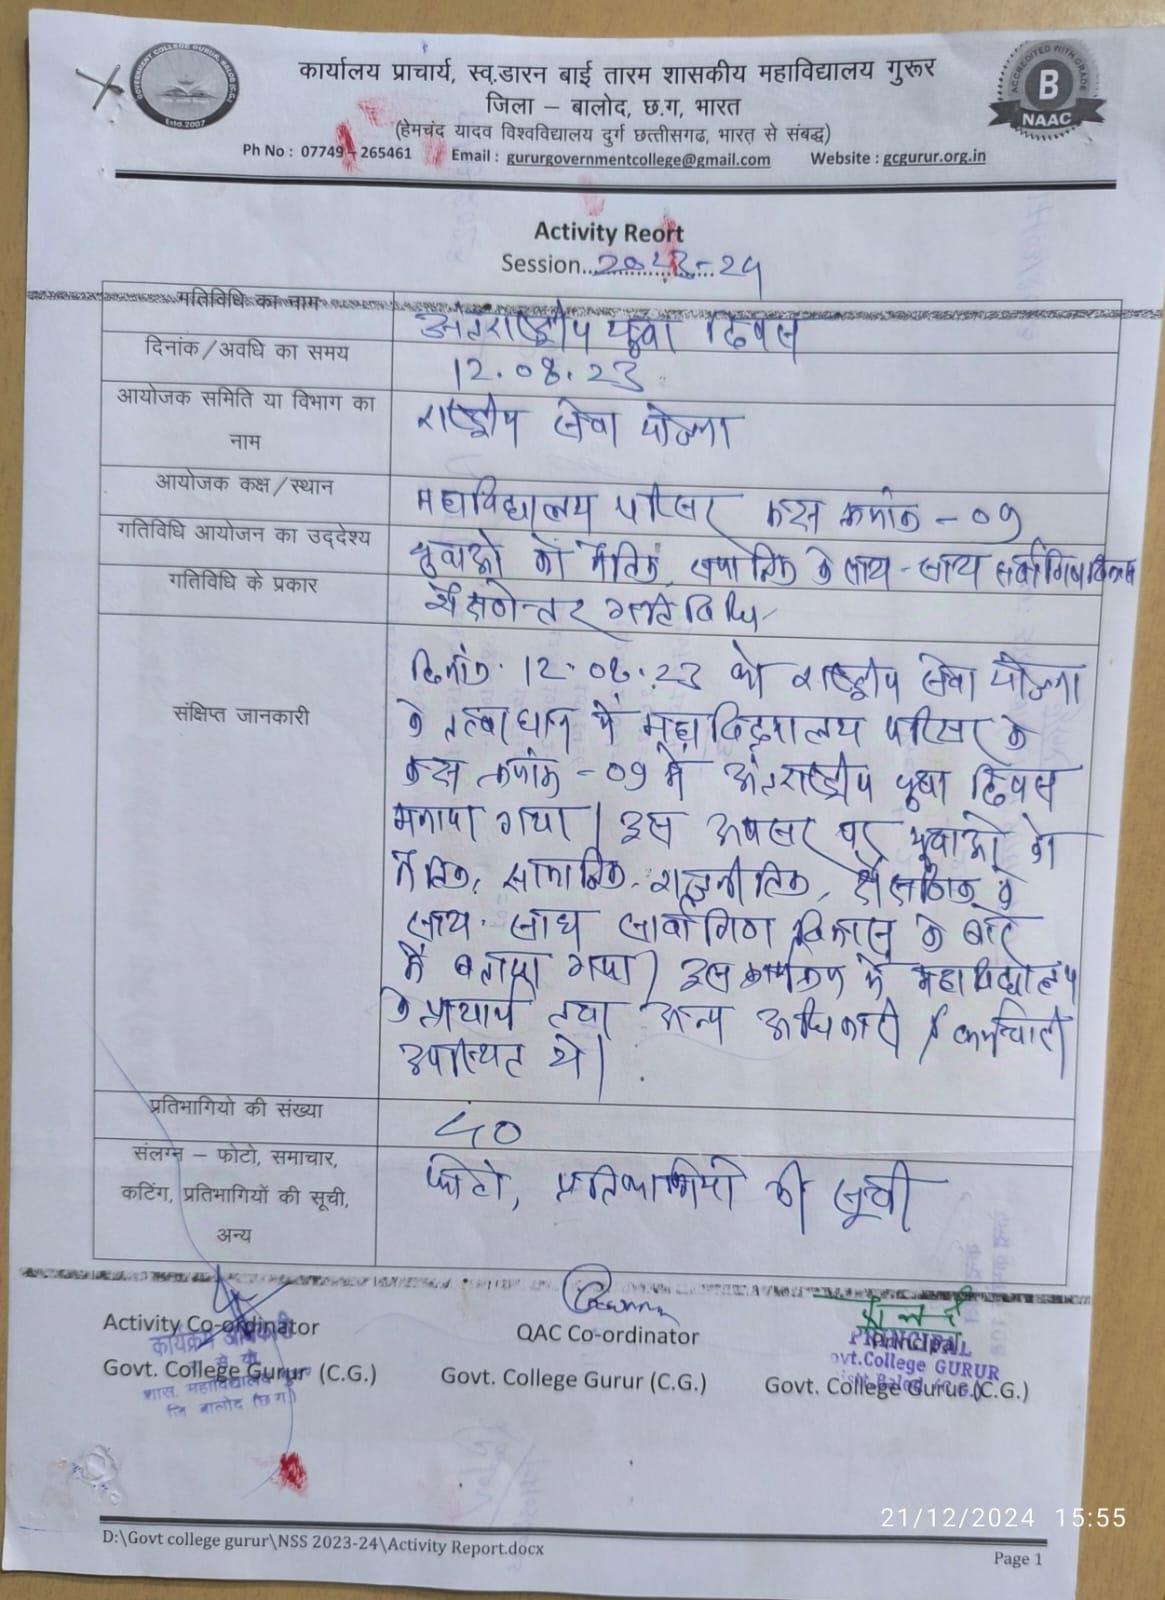 GOVERNMENT COLLEGE GURUR, BALOD (C.G.)
Estd.2007
कार्यालय प्राचार्य, स्व.डारन बाई तारम शासकीय महाविद्यालय गुरूर
जिला – बालोद, छ.ग, भारत
(हेमचंद यादव विश्वविद्यालय दुर्ग छत्तीसगढ, भारत से संबद्ध)
Ph No : 07749 - 265461 Email : gururgovernmentcollege@gmail.com Website : gcgurur.org.in
ACCREDITED WITH GRADE
B
NAAC
Activity Reort
Session..2023-24
गतिविधि का नाम अंतराष्ट्रीय युवा दिवस
दिनांक/अवधि का समय 12.08.23
आयोजक समिति या विभाग का नाम राष्ट्रीय सेवा योजना
आयोजक कक्ष/स्थान महाविद्यालय परिसर कक्ष क्रमांक - 09
गतिविधि आयोजन का उद्देश्य युवाओ को नैतिक, सामाजिक के साथ - साथ सर्वांगिण विकास
गतिविधि के प्रकार शैक्षणेत्तर गतिविधि
संक्षिप्त जानकारी
दिनांक. 12.08.23 को राष्ट्रीय सेवा योजना
के तत्वाधान में महाविद्यालय परिसर के
कक्ष क्रमांक - 09 में अंतराष्ट्रीय युवा दिवस
मनाया गया। इस अवसर पर युवाओ को
नैतिक, सामाजिक, राजनीतिक, शैक्षणिक के
साथ - साथ सार्वांगिण विकास के बारे
में बताया गया। इस कार्यक्रम में महाविद्यालय
के प्राचार्य तथा अन्य अधिकारी / कर्मचारी
उपस्थित थे।
प्रतिभागियो की संख्या 50
संलग्न – फोटो, समाचार, कटिंग, प्रतिभागियों की सूची, अन्य फोटो, प्रतिभागियो की सूची
Activity Co-ordinator QAC Co-ordinator Principal
Govt. College Gurur (C.G.) Govt. College Gurur (C.G.) Govt. College Gurur (C.G.)
कार्यक्रम अधिकारी
शास. महाविद्यालय
जि बालोद (छ ग)
PRINCIPAL
Govt.College GURUR
D:\Govt college gurur\NSS 2023-24\Activity Report.docx
Page 1
21/12/2024 15:55